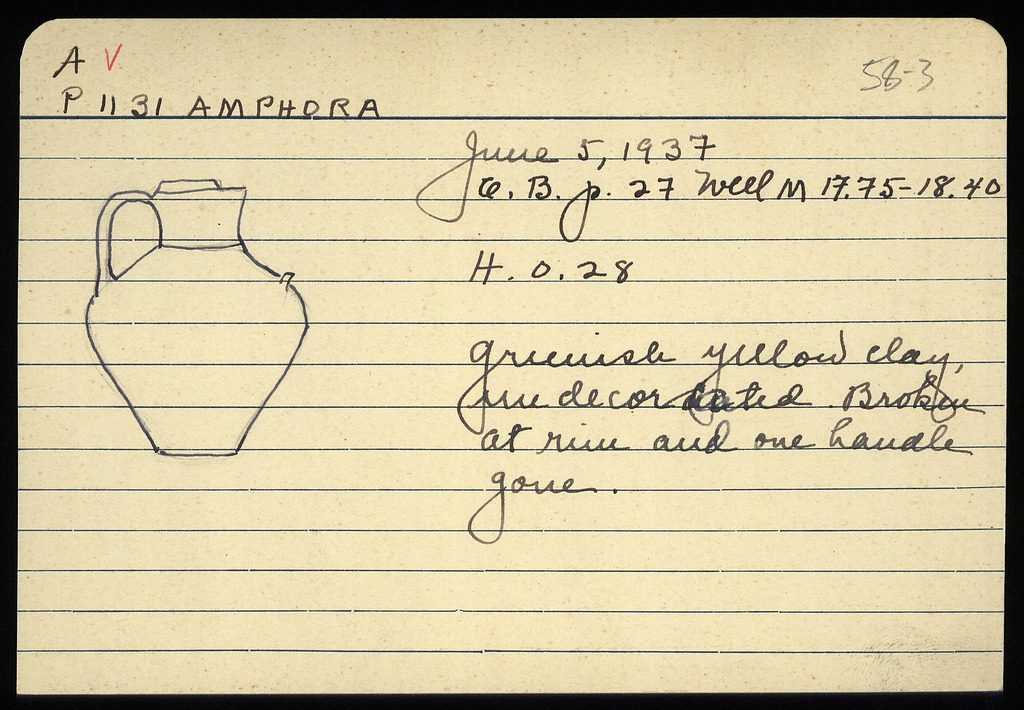 A V
58-3
P 1131 AMPHORA
June 5, 1937
G. B. p. 27 Well M 17.75-18.40
H. 0.28
Greenish yellow clay,
undecorated. Broken
at rim and one handle
gone.